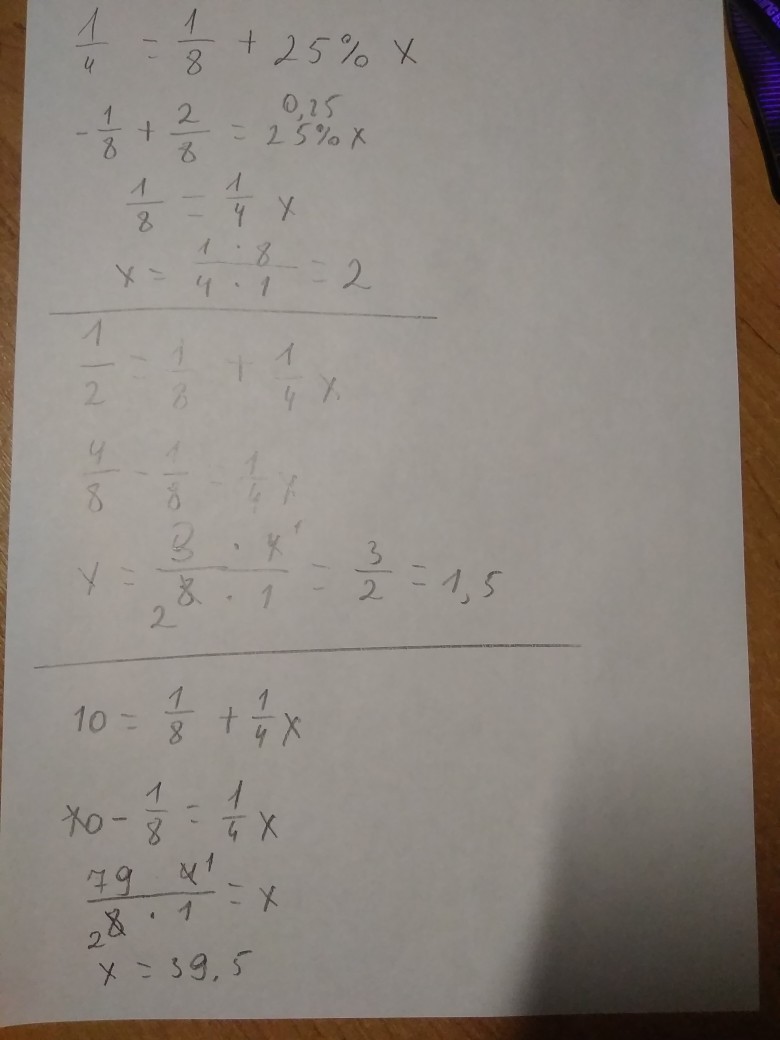 1/4 = 1/8 + 25% x
0,25
-1/8 + 2/8 = 25% x
1/8 = 1/4 x
x = 1 · 8 / 4 · 1 = 2
1/2 = 1/8 + 1/4 x
4/8 - 1/8 = 1/4 x
x = 3 · 4 1 / 2 8 · 1 = 3/2 = 1,5
10 = 1/8 + 1/4 x
10 - 1/8 = 1/4 x
79 4 1 / 2 8 · 1 = x
x = 39,5